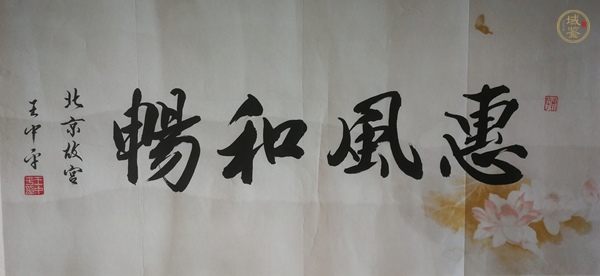 惠風和暢
北京故宮
王中平
域鉴